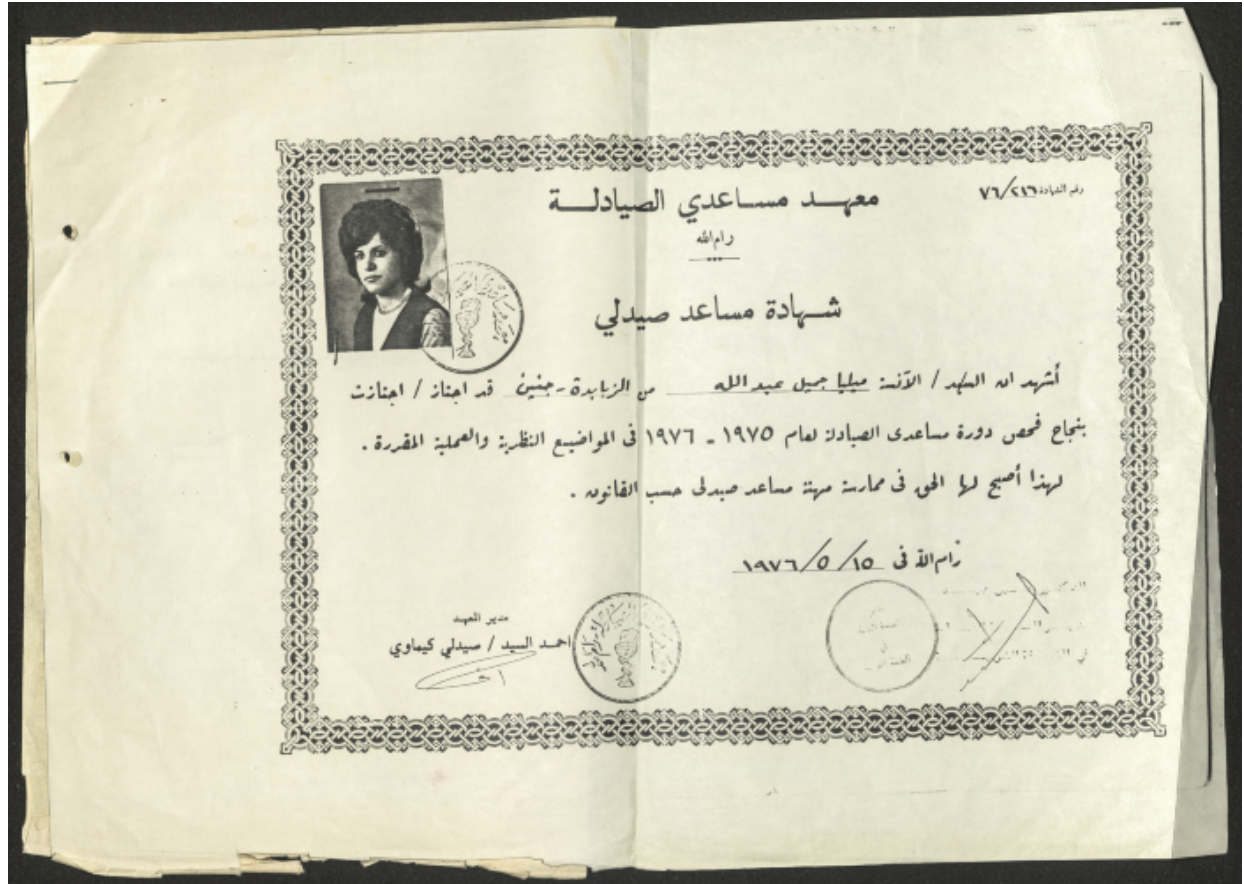 رقم الشهادة ٧٦/٢١٦
معهـد مسـاعدي الصيادلـة
رام الله
شـهادة مساعد صيدلي
أشهد ان السيد / الآنسة ميليا جميل عبد الله من الزبابدة - جنين قد اجتاز / اجتازت
بنجاح فحص دورة مساعدى الصيادلة لعام ١٩٧٥ - ١٩٧٦ فى المواضيع النظرية والعملية المقررة .
لهذا أصبح لها الحق فى ممارسة مهنة مساعد صيدلى حسب القانون .
رام الله فى ١٥/٥/١٩٧٦
مدير المعهد
احمد السيد / صيدلي كيماوي